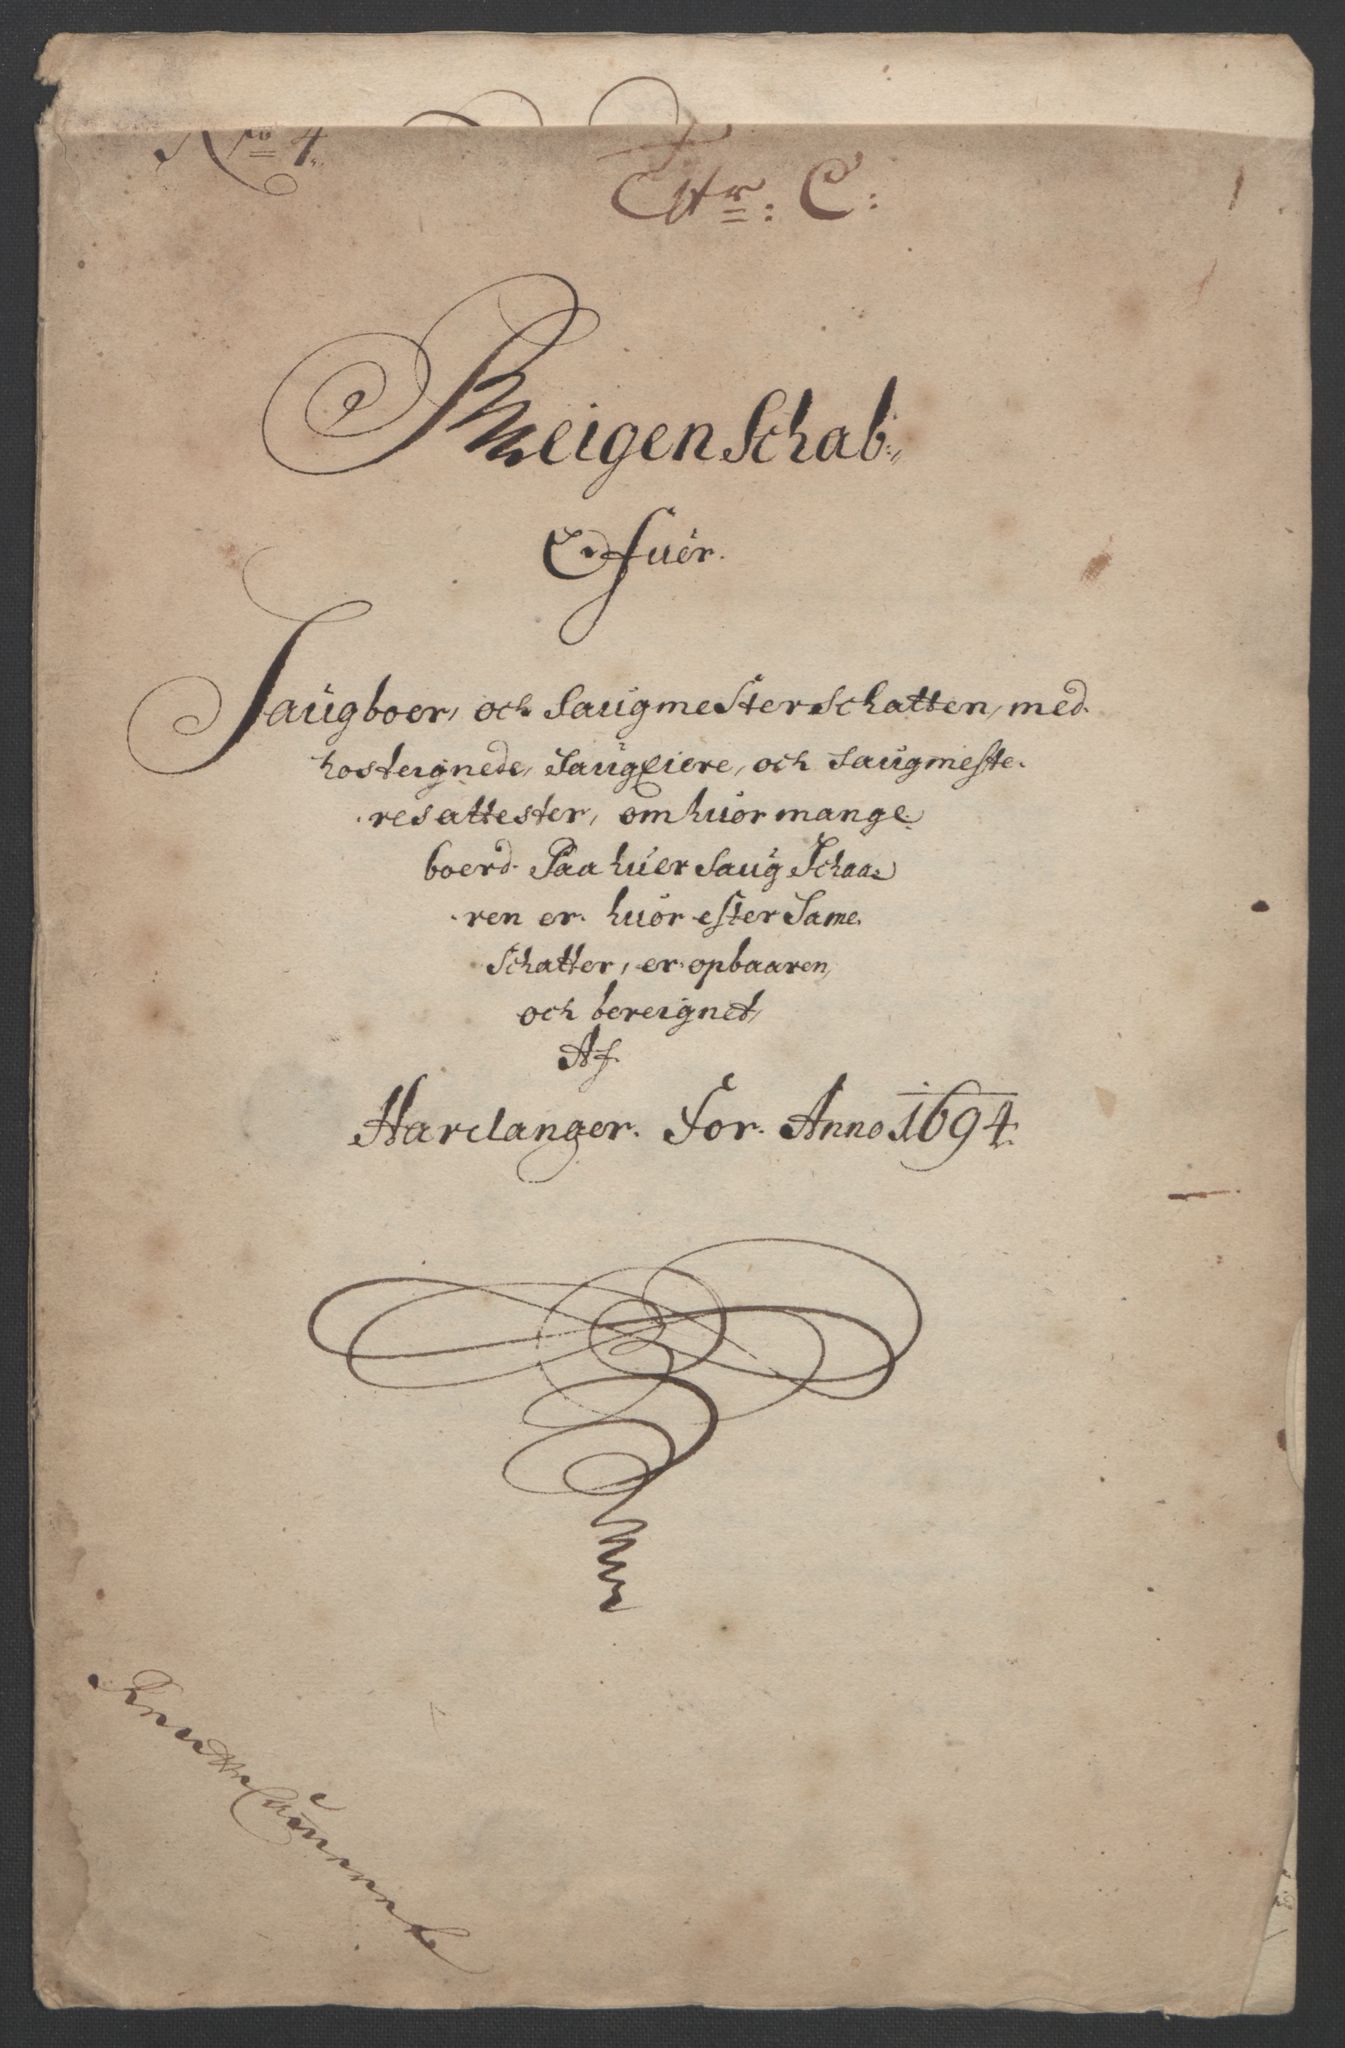 No 4
Ltr: C:
1
Reigenschab
Ofuer
Saugboer, och Saugmesterschatten, med
hosteignede, Saugeiere, och Saugmeste-
res attester, om huor mange
boerd Paa huer Saug Schaa-
ren er. huor efter Same
Schatter, er opbaaren,
och bereignet,
Af
Hardanger. For. Anno 1694